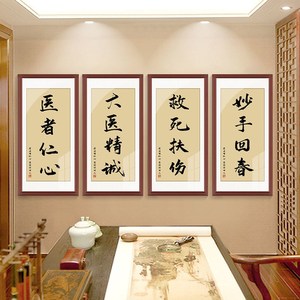 医者仁心
大医精诚
救死扶伤
妙手回春